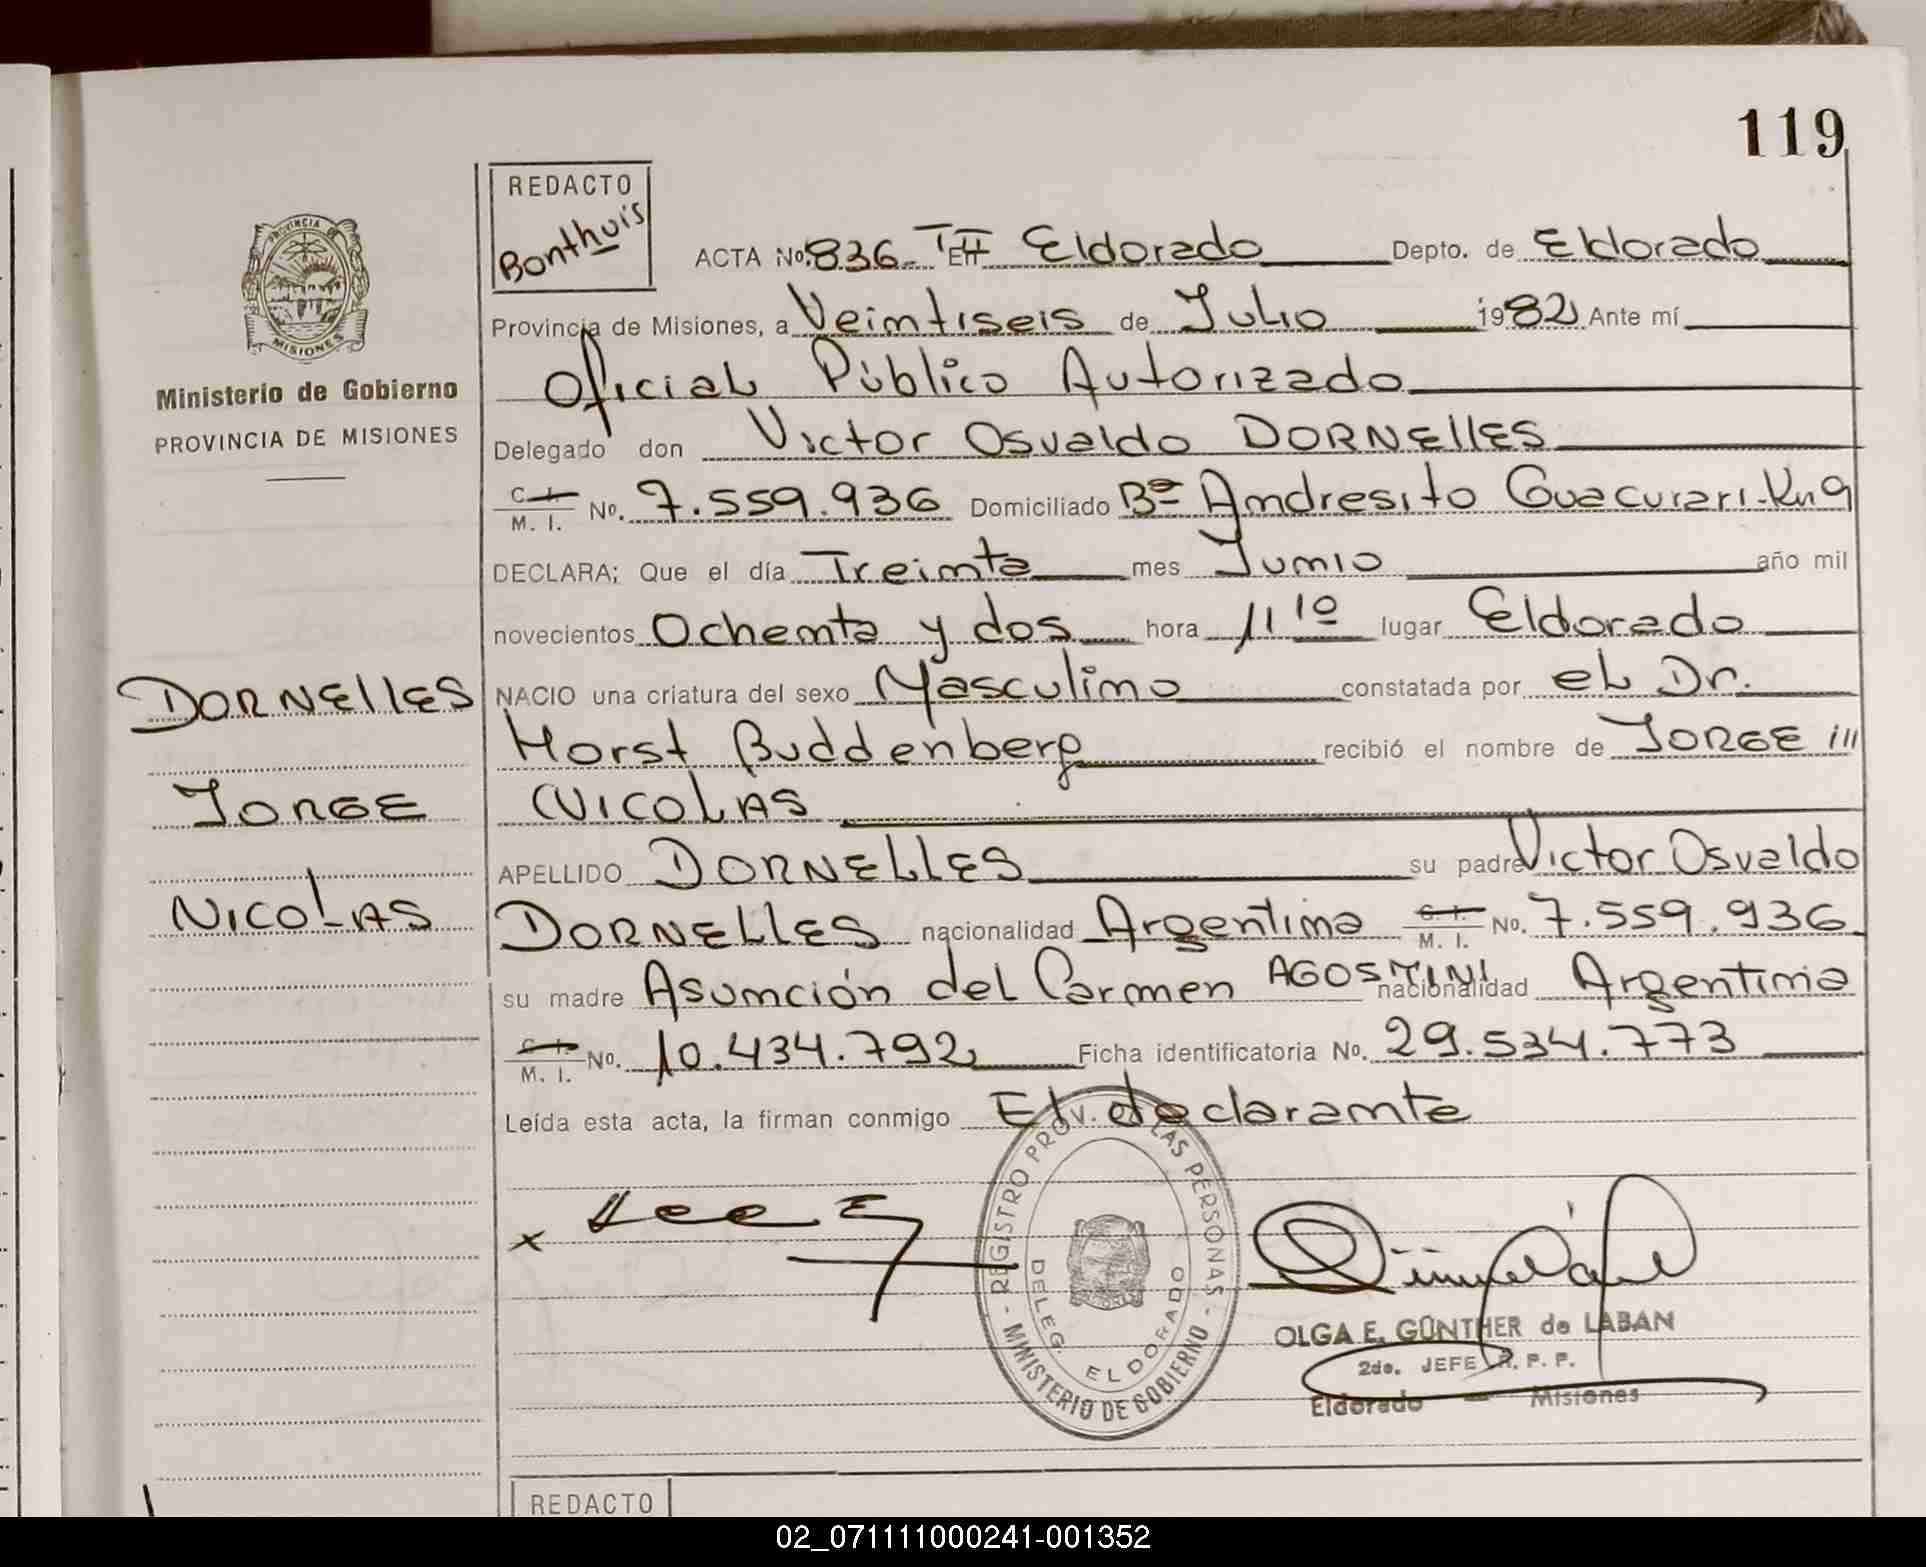 119
REDACTO
Bonthuis
ACTA No. 836 - T II Eldorado Depto. de Eldorado
Provincia de Misiones, a Veintiseis de Julio 1982 Ante mí
Oficial Público Autorizado
Delegado don Victor Osvaldo DORNELLES
C. I. M. I. No. 7.559.936 Domiciliado Bº Andresito Guacurari-Km 9
DECLARA; Que el día Treinta mes Junio año mil
novecientos Ochenta y dos hora 11 10 lugar Eldorado
NACIO una criatura del sexo Masculino constatada por el Dr.
Horst Buddenberg recibió el nombre de JORGE
NICOLAS
APELLIDO DORNELLES su padre Victor Osvaldo
DORNELLES nacionalidad Argentina C. I. M. I. No. 7.559.936
su madre Asunción del Carmen AGOSTINI nacionalidad Argentina
C. I. M. I. No. 10.434.792 Ficha identificatoria No. 29.534.773
Leída esta acta, la firman conmigo El declarante
PROVINCIA DE MISIONES
Ministerio de Gobierno
PROVINCIA DE MISIONES
DORNELLES
JORGE
NICOLAS
x
REGISTRO PROV. LAS PERSONAS - MINISTERIO DE GOBIERNO -
DELEG. ELDORADO
OLGA E. GÜNTHER de LABAN
2do. JEFE R. P. P.
Eldorado — Misiones
REDACTO
02_071111000241-001352